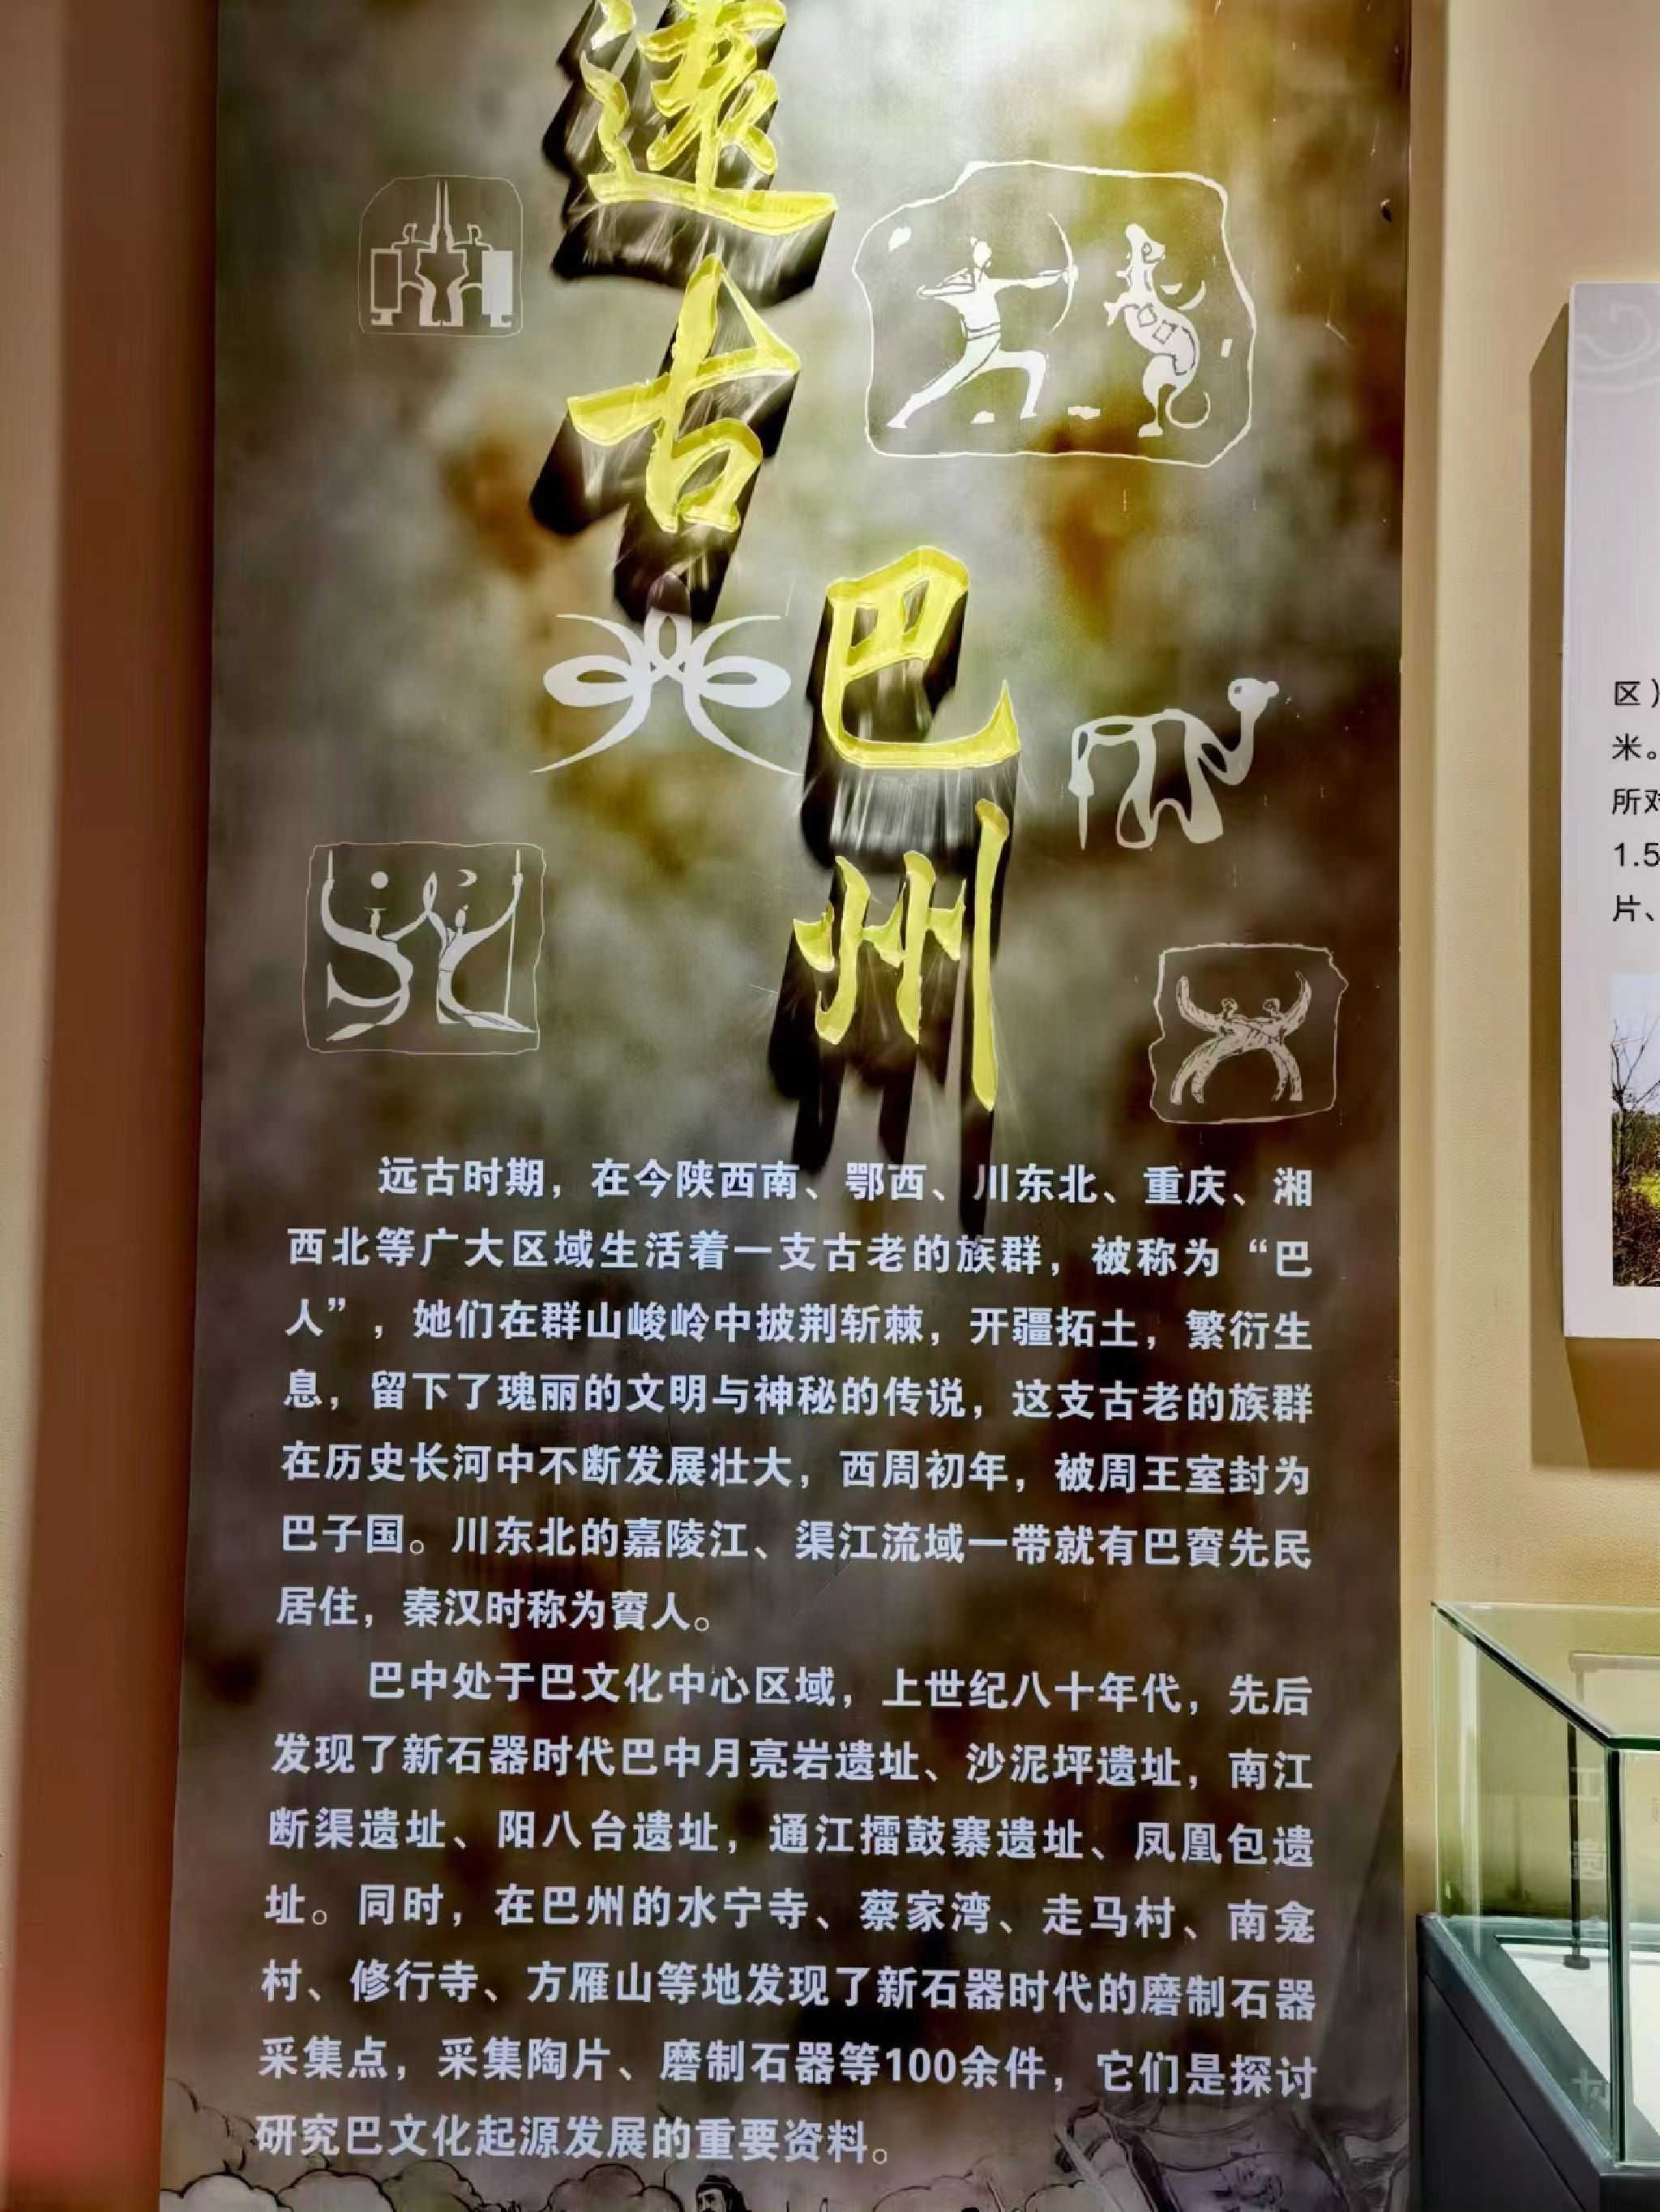 遠古
巴州
远古时期，在今陕西南、鄂西、川东北、重庆、湘
西北等广大区域生活着一支古老的族群，被称为“巴
人”，她们在群山峻岭中披荆斩棘，开疆拓土，繁衍生
息，留下了瑰丽的文明与神秘的传说，这支古老的族群
在历史长河中不断发展壮大，西周初年，被周王室封为
巴子国。川东北的嘉陵江、渠江流域一带就有巴賨先民
居住，秦汉时称为賨人。
巴中处于巴文化中心区域，上世纪八十年代，先后
发现了新石器时代巴中月亮岩遗址、沙泥坪遗址，南江
断渠遗址、阳八台遗址，通江擂鼓寨遗址、凤凰包遗
址。同时，在巴州的水宁寺、蔡家湾、走马村、南龛
村、修行寺、方雁山等地发现了新石器时代的磨制石器
采集点，采集陶片、磨制石器等100余件，它们是探讨
研究巴文化起源发展的重要资料。
区）
米。
所对
1.5
片、